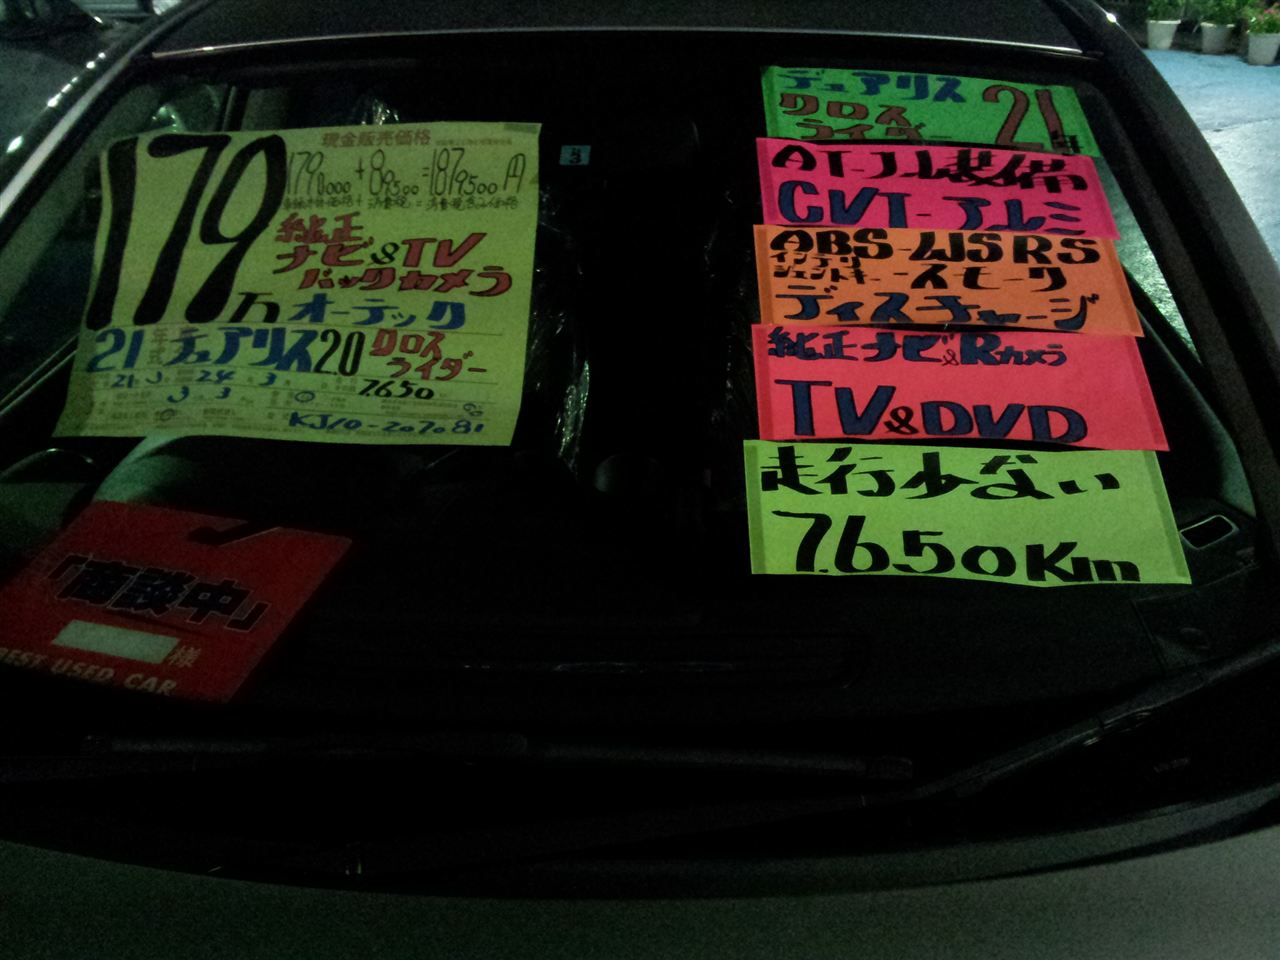 現金販売価格
179万
1790000+89500=1879500円
車輌本体価格+消費税=消費税含む価格
純正
ナビ&TV
バックカメラ
オーテック
21年式デュアリス20クロス
ライダー
21 3 24 3 7.650
3 3
KJ10-207081
「商談中」
様
BEST USED CAR
3
デュアリス
クロス
ライダー 21年
AT-フル装備
CVT-アルミ
ABS-WSRS
インテリ
ジェントキー-スモーク
ディスチャージ
純正ナビ&Rカメラ
TV&DVD
走行少ない
7.650Km